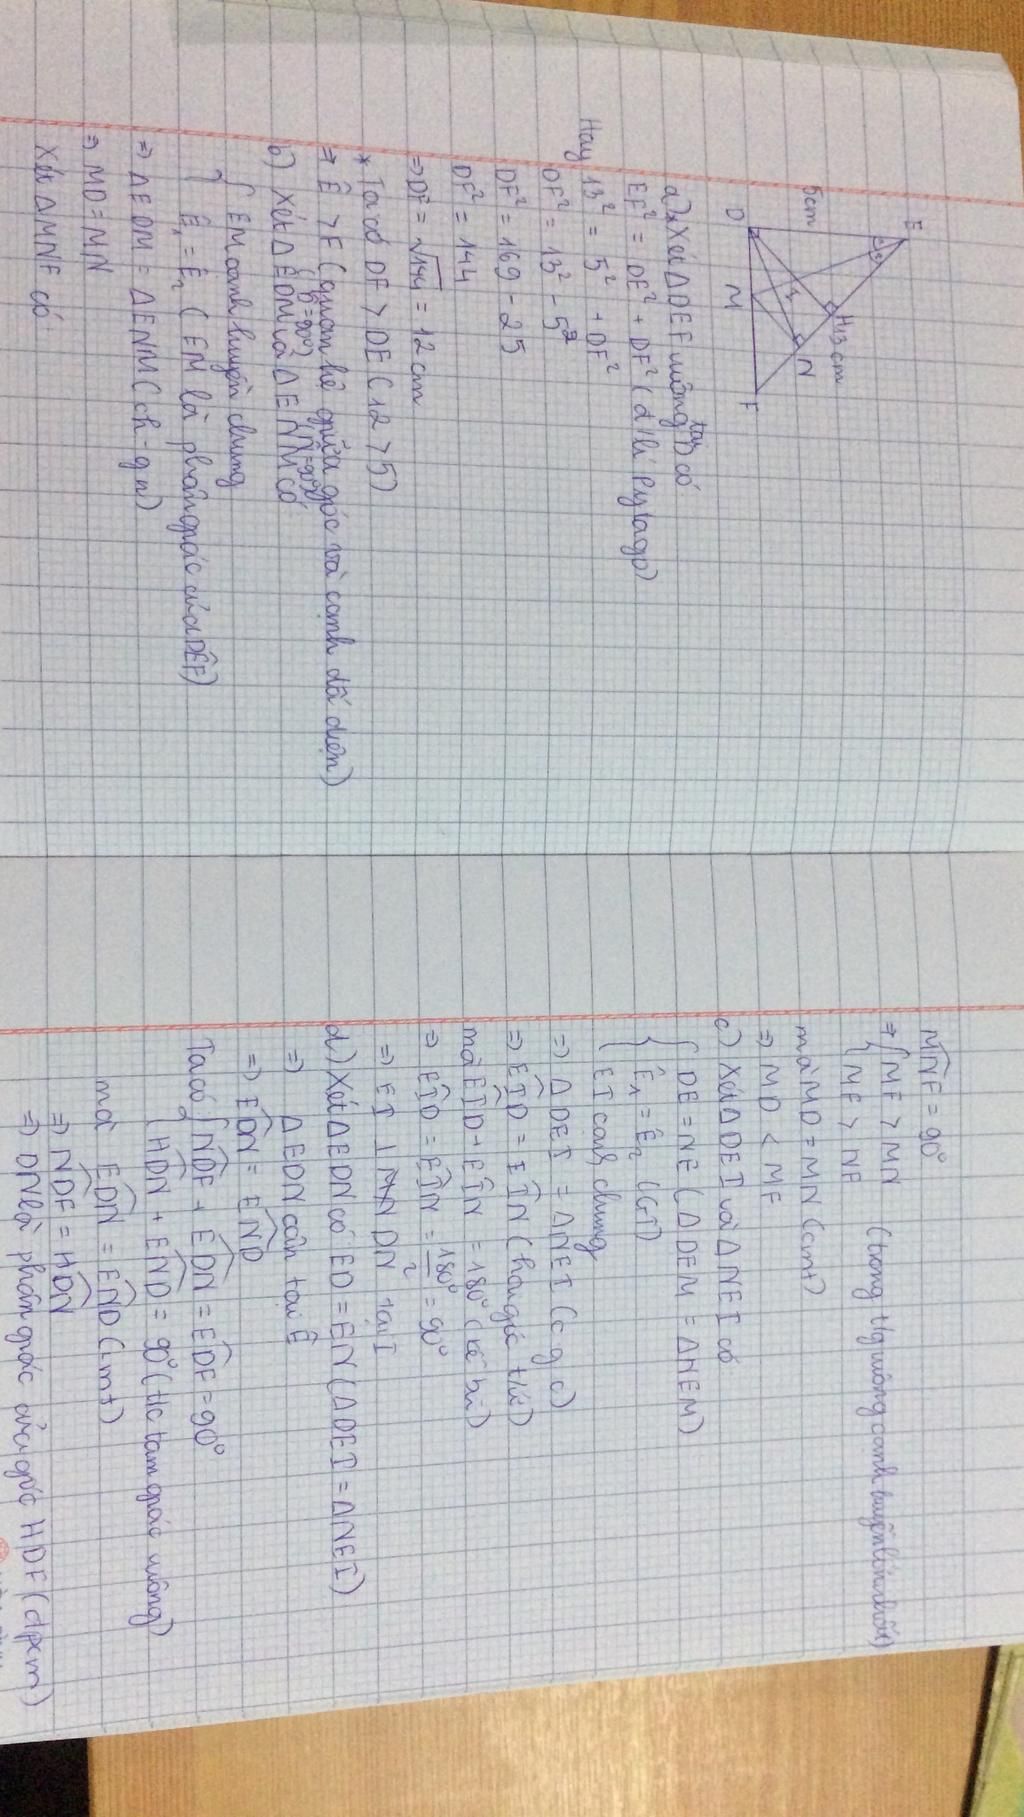 E
5cm
H
13cm
N
D
M
F
I
a) * Xét ΔDEF vuông tại D có
EF² = DE² + DF² (đ/lí Pytago)
Hay 13² = 5² + DF²
DF² = 13² - 5²
DF² = 169 - 25
DF² = 144
=> DF = √144 = 12 cm
* Ta có DF > DE (12 > 5)
=> Ê > F (quan hệ giữa góc và cạnh đối diện)
b) Xét ΔEDM (D̂=90°) và ΔENM (N̂=90°) có
{ EM cạnh huyền chung
Ê₁ = Ê₂ (EM là phân giác của DÊF)
=> ΔEDM = ΔENM (ch-gn)
=> MD = MN
Xét ΔMNF có
MN̂F = 90°
=> { MF > MN (trong t/g vuông cạnh huyền lớn nhất)
MF > NF
mà MD = MN (cmt)
=> MD < MF
c) Xét ΔDEI và ΔNEI có
{ DE = NE (ΔDEM = ΔNEM)
Ê₁ = Ê₂ (GT)
EI cạnh chung
=> ΔDEI = ΔNEI (c g c)
=> EÎD = EÎN (hai góc t/ứ)
mà EÎD + EÎN = 180° (kề bù)
=> EÎD = EÎN = 180°/2 = 90°
=> EI ⊥ DN tại I
d) Xét ΔEDN có ED = EN (ΔDEI = ΔNEI)
=> ΔEDN cân tại Ê
=> ED̂N = EN̂D
Ta có { ND̂F + ED̂N = ED̂F = 90°
HD̂N + EN̂D = 90° (t/c tam giác vuông)
mà ED̂N = EN̂D (cmt)
=> ND̂F = HD̂N
=> DN là phân giác của góc HDF (đpcm)